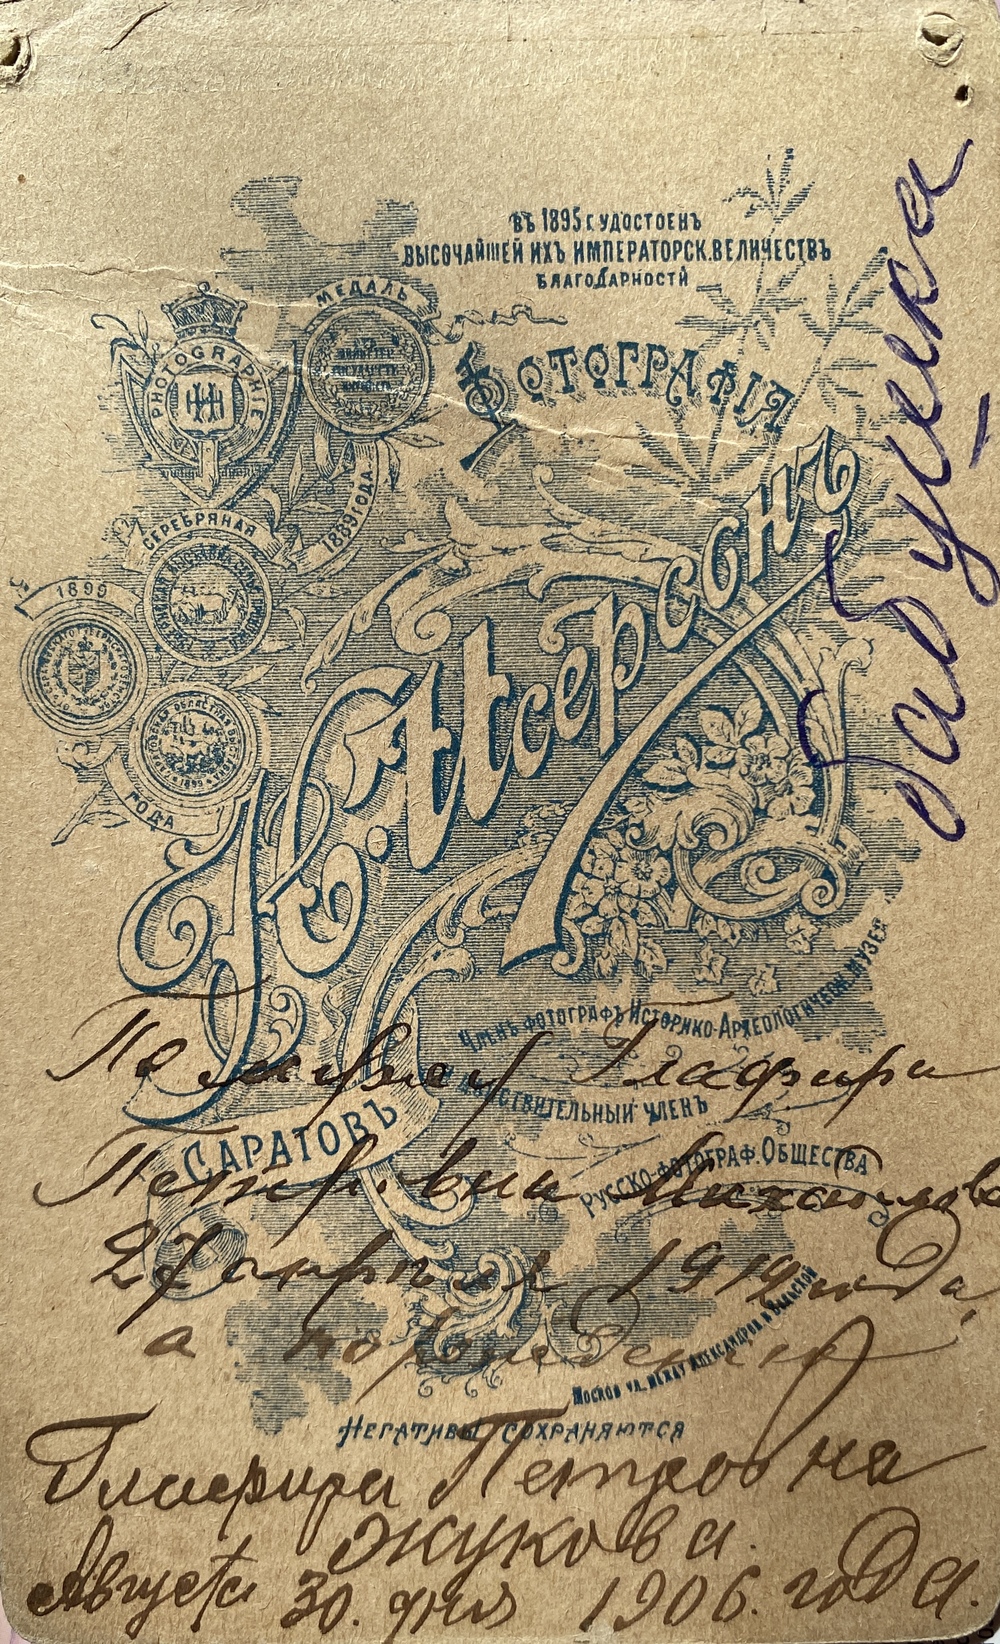 въ 1895 г. удостоенъ
высочайшей ихъ императорск. величествъ
благодарности
МЕДАЛЬ
PHOTOGRAPHIE
ФОТОГРАФIЯ
1889 ГОДА
СЕРЕБРЯНАЯ
1899
1899
ГОДА
САРАТОВЪ
Членъ фотографъ Историко-Археологическ. музея
действительный членъ
Русско-фотограф. Общества
Москов ул. между Александров и Вольской
Негативы сохраняются
бабушка
Глафира
Петровна Михайлова
27 апреля 1912 года,
а
Глафира Петровна
Жукова.
Августа 30. дня 1906. года.